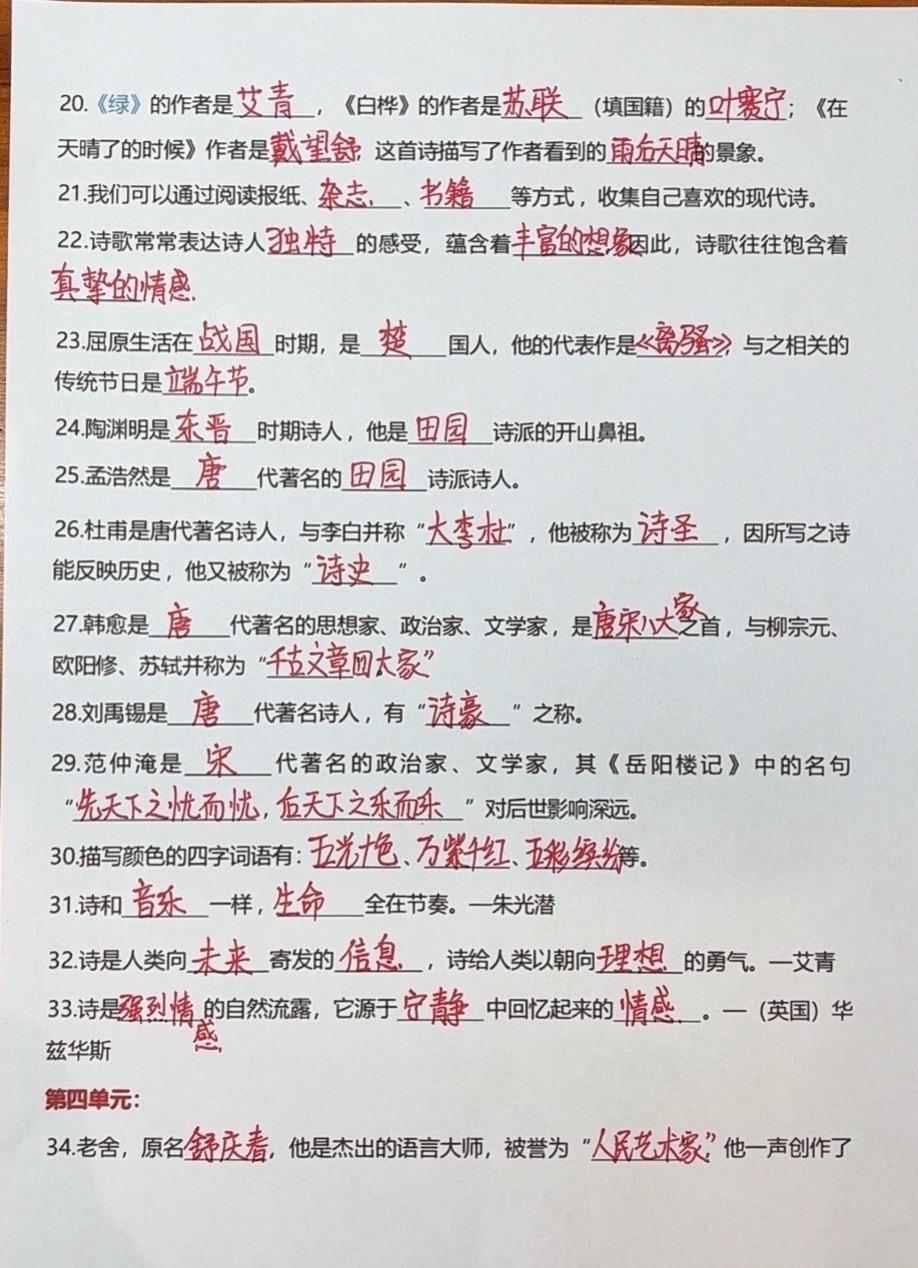 20.《绿》的作者是艾青，《白桦》的作者是苏联（填国籍）的叶赛宁；《在
天晴了的时候》作者是戴望舒，这首诗描写了作者看到的雨后天晴的景象。
21.我们可以通过阅读报纸、杂志、书籍等方式，收集自己喜欢的现代诗。
22.诗歌常常表达诗人独特的感受，蕴含着丰富的想象因此，诗歌往往饱含着
真挚的情感.
23.屈原生活在战国时期，是楚国人，他的代表作是《离骚》，与之相关的
传统节日是端午节。
24.陶渊明是东晋时期诗人，他是田园诗派的开山鼻祖。
25.孟浩然是唐代著名的田园诗派诗人。
26.杜甫是唐代著名诗人，与李白并称“大李杜”，他被称为诗圣，因所写之诗
能反映历史，他又被称为“诗史”。
27.韩愈是唐代著名的思想家、政治家、文学家，是唐宋八大家之首，与柳宗元、
欧阳修、苏轼并称为“千古文章四大家”
28.刘禹锡是唐代著名诗人，有“诗豪”之称。
29.范仲淹是宋代著名的政治家、文学家，其《岳阳楼记》中的名句
“先天下之忧而忧，后天下之乐而乐”对后世影响深远。
30.描写颜色的四字词语有：五光十色、万紫千红、五彩缤纷等。
31.诗和音乐一样，生命全在节奏。—朱光潜
32.诗是人类向未来寄发的信息，诗给人类以朝向理想的勇气。—艾青
33.诗是强烈情感的自然流露，它源于宁静中回忆起来的情感。—（英国）华
兹华斯
第四单元：
34.老舍，原名舒庆春，他是杰出的语言大师，被誉为“人民艺术家”，他一声创作了